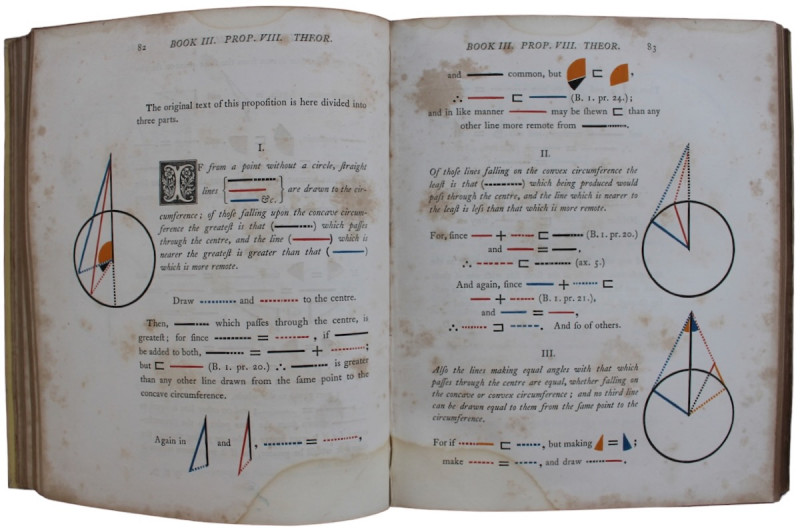 82
BOOK III. PROP. VIII. THEOR.
The original text of this propoſition is here divided into
three parts.
I.
IF from a point without a circle, ſtraight
lines { &c. } are drawn to the cir-
cumference; of thoſe falling upon the concave circum-
ference the greateſt is that ( ) which paſſes
through the centre, and the line ( ) which is
nearer the greateſt is greater than that ( )
which is more remote.
Draw and to the centre.
Then, which paſſes through the centre, is
greateſt; for ſince = , if
be added to both, = + ;
but ⊏ (B. 1. pr. 20.) ∴ is greater
than any other line drawn from the ſame point to the
concave circumference.
Again in and , = ,
BOOK III. PROP. VIII. THEOR.
83
and common, but ⊏ ,
∴ ⊏ (B. 1. pr. 24.);
and in like manner may be ſhewn ⊏ than any
other line more remote from .
II.
Of thoſe lines falling on the convex circumference the
leaſt is that ( ) which being produced would
paſs through the centre, and the line which is nearer to
the leaſt is leſs than that which is more remote.
For, ſince + ⊏ (B. 1. pr. 20.)
and = ,
∴ ⊏ (ax. 5.)
And again, ſince + ⊏
+ (B. 1. pr. 21.),
and = ,
∴ ⊏ . And ſo of others.
III.
Alſo the lines making equal angles with that which
paſſes through the centre are equal, whether falling on
the concave or convex circumference; and no third line
can be drawn equal to them from the ſame point to the
circumference.
For if ⊏ , but making = ;
make = , and draw .